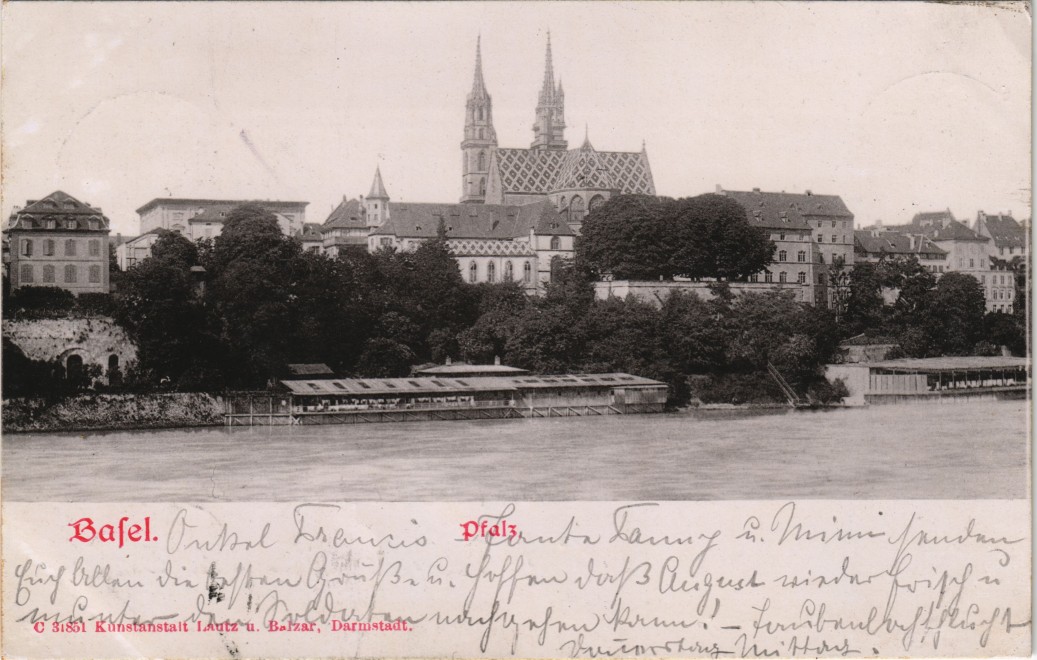 Basel.
Pfalz.
Onkel Francis Tante Fanny u. Mimi senden
Euch Allen die besten Grüße u. hoffen daß August wieder frisch u
munter den Soldaten nachgehen kann! –
Donnerstag Mittag.
C 31851 Kunstanstalt Lautz u. Balzar, Darmstadt.